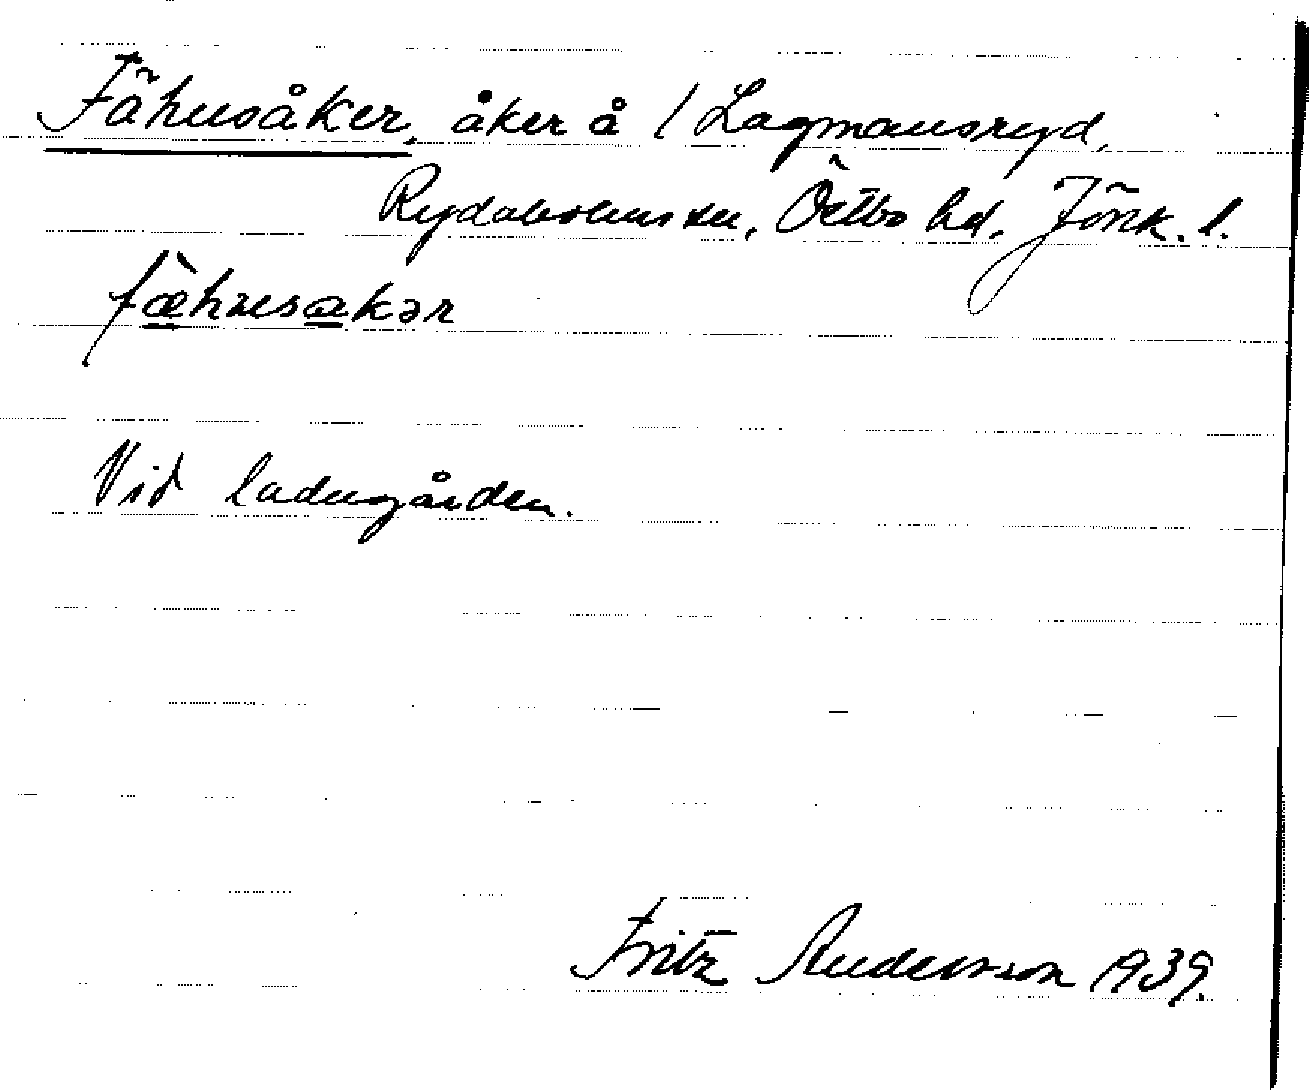 Fähusåker, åker å / Lagmansryd,
Rydaholms sn, Östbo hd, Jönk. l.
fæ̀husakər
Vid ladugården.
Fritz Andersson 1939.